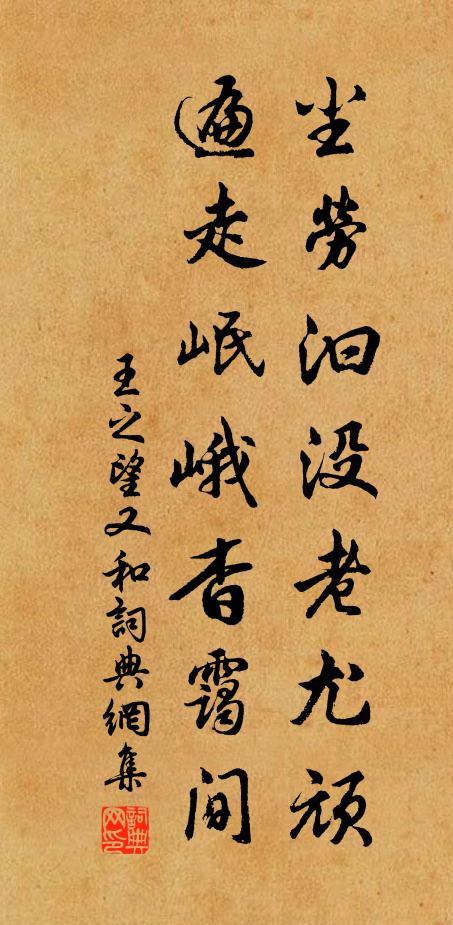 尘劳汩没老尤顽
遍走岷峨杳霭间
王之望又和詞典網集
詞典网印